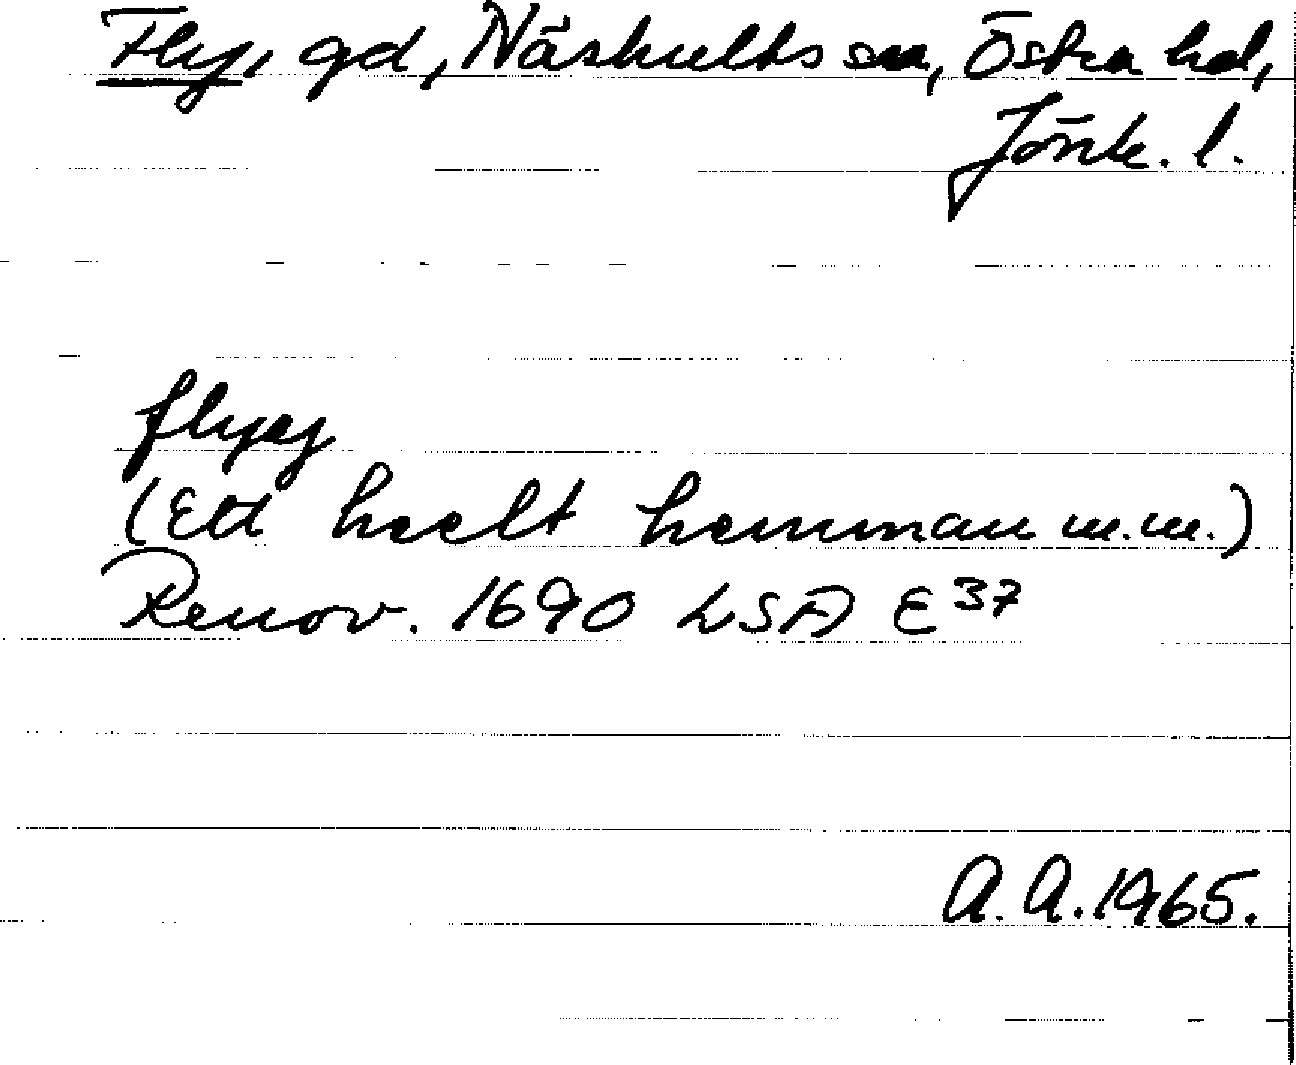 Fly, gd, Näshults sn, Östra hd,
Jönk. l.
flyyg
(Ett heelt hemman m.m.)
Renov. 1690 LSA E37
A.A. 1965.